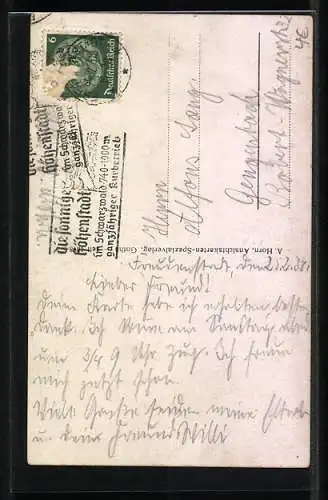 6
Deutsches Reich
die sonnige
Höhenstadt
im Schwarzwald 740-1000 m
ganzjähriger Kurbetrieb
die sonnige
Höhenstadt
im Schwarzwald
ganzjähriger
4€
Herrn
Alfons Lang
Gengenbach
Robert-Wagnerstr
A. Horn, Ansichtskarten-Spezialverlag, Gotha
Freudenstadt, den
Lieber Freund!
Deine Karte habe ich erhalten besten
Dank. Ich komme am Samstag Abend
um 3/4 9 Uhr Zug. Ich freue
mich jetzt schon.
Viele Grüße senden meine Eltern
u. Dein Freund Willi